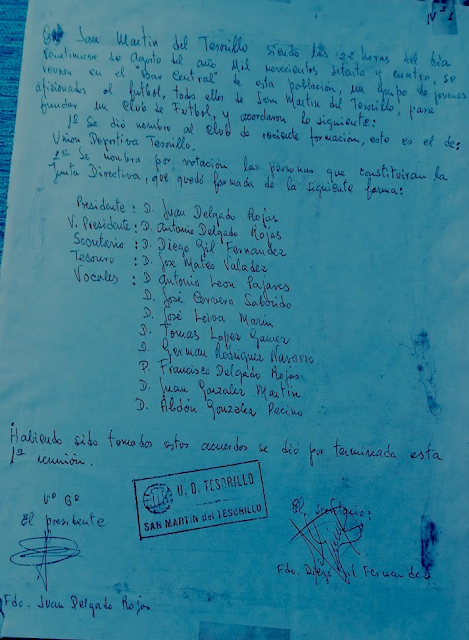 En San Martin del Tesorillo siendo las 22 horas del dia
veintinueve de Agosto del año mil novecientos setenta y cuatro, se
reunen en el "Bar Central" de esta población, un grupo de jovenes
aficionados al futbol, todos ellos de San Martin del Tesorillo, para
fundar un Club de Futbol, y acordaron lo siguiente:
1º Se dió nombre al club de reciente formacion, este es el de:
Union Deportiva Tesorillo.
2º Se nombra por votación las personas que constituiran la
Junta Directiva, que quedó formada de la siguiente forma:
Presidente : D. Juan Delgado Rojas
V. Presidente : D. Antonio Delgado Rojas
Secretario : D. Diego Gil Fernandez
Tesorero : D. Jose Mateo Valadez
Vocales : D. Antonio Leon Pajares
D. José Corvera Saborido
D. José Leiva Marin
D. Tomas Lopez Gamez
D. German Rodriguez Navarro
D. Francisco Delgado Rojas
D. Juan Gonzalez Martin
D. Abdón Gonzalez Pecino
Habiendo sido tomados estos acuerdos se dió por terminada esta
1ª reunión.
Vº Bº
El presidente
U. D. TESORILLO
SAN MARTIN del TESORILLO
El
Fdo. Diego Gil Fernandez
Fdo. Juan Delgado Rojas